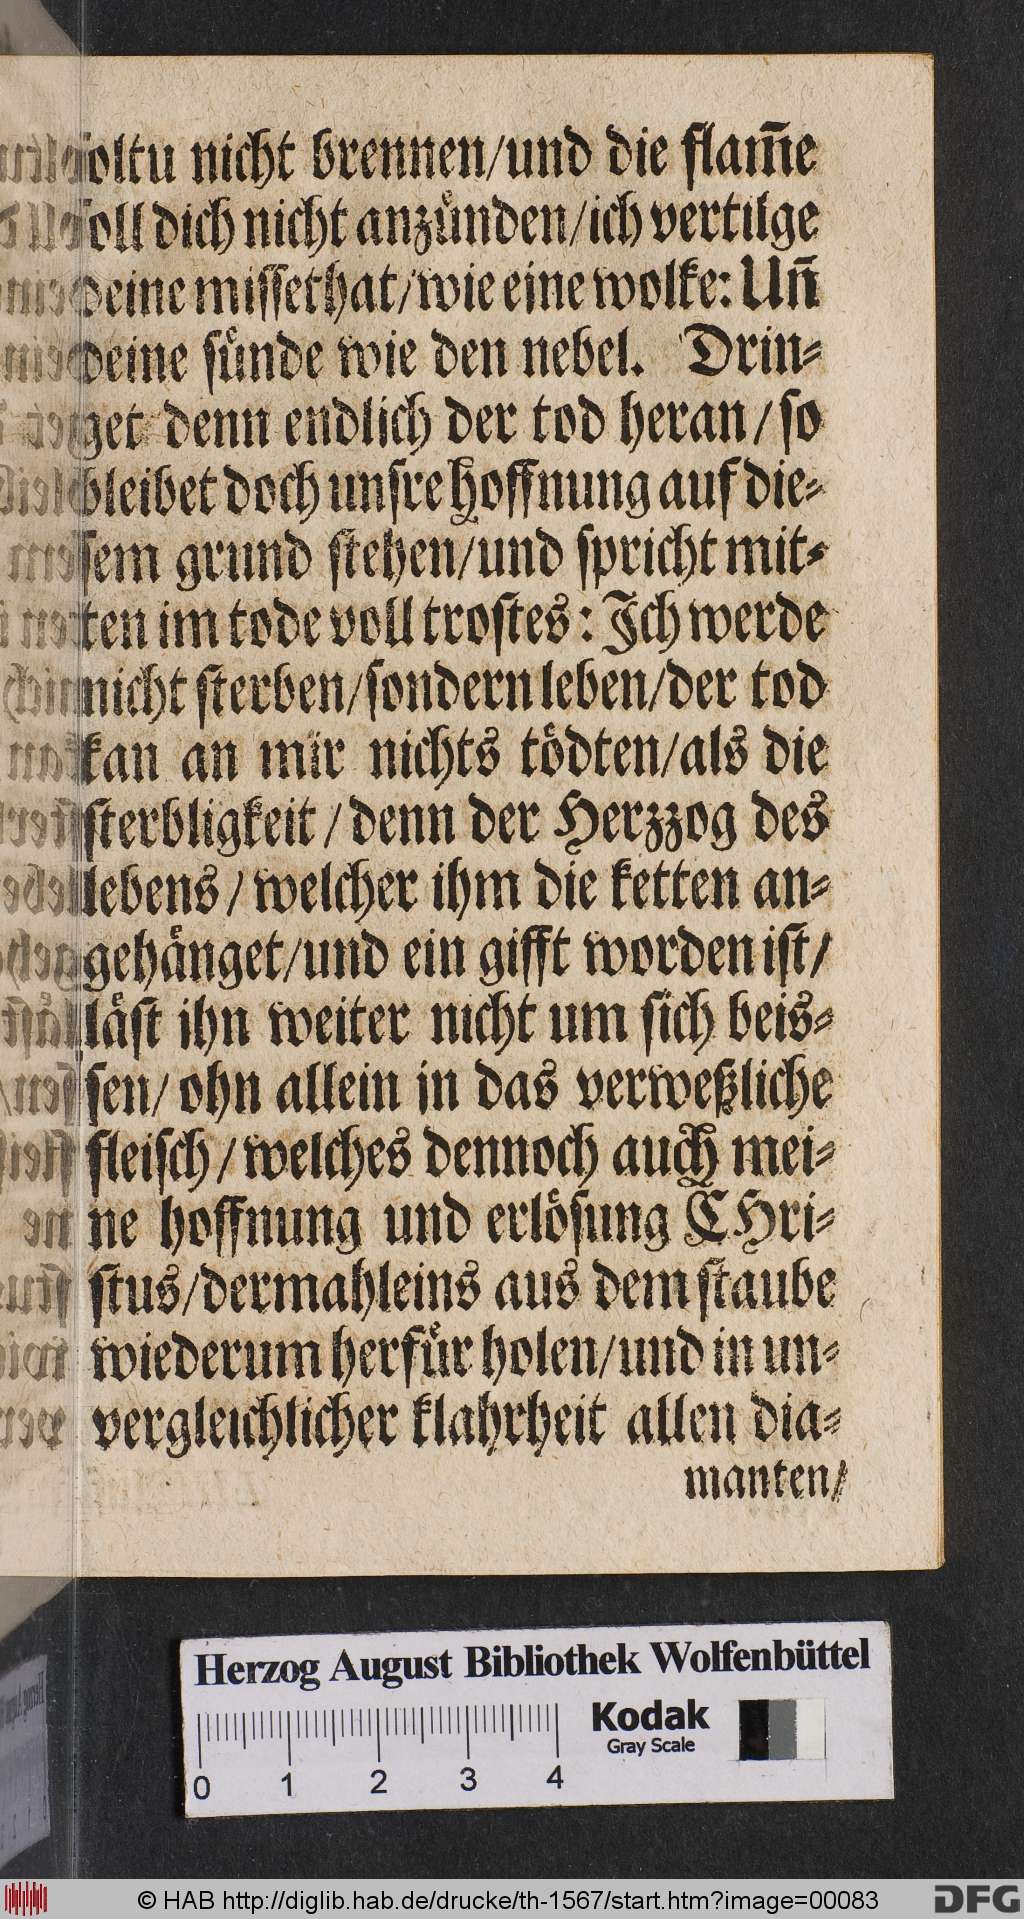 soltu nicht brennen/und die flam̃e
soll dich nicht anzuͤnden/ich vertilge
deine missethat/wie eine wolke: Uñ
deine suͤnde wie den nebel. Drin-
get denn endlich der tod heran/so
bleibet doch unsre Hoffnung auf die-
sem grund stehen/und spricht mit-
ten im tode voll trostes: Ich werde
nicht sterben/sondern leben/der tod
kan an mir nichts toͤdten/als die
sterbligkeit/denn der Herzzog des
lebens/welcher ihm die ketten an-
gehaͤnget/und ein gifft worden ist/
laͤst ihn weiter nicht um sich beis-
sen/ohn allein in das verweßliche
fleisch/welches dennoch auch mei-
ne hoffnung und erloͤsung CHri-
stus/dermahleins aus dem staube
wiederum herfuͤr holen/und in un-
vergleichlicher klahrheit allen dia-
manten/
Herzog August Bibliothek Wolfenbüttel
Kodak
Gray Scale
0 1 2 3 4
© HAB http://diglib.hab.de/drucke/th-1567/start.htm?image=00083
DFG